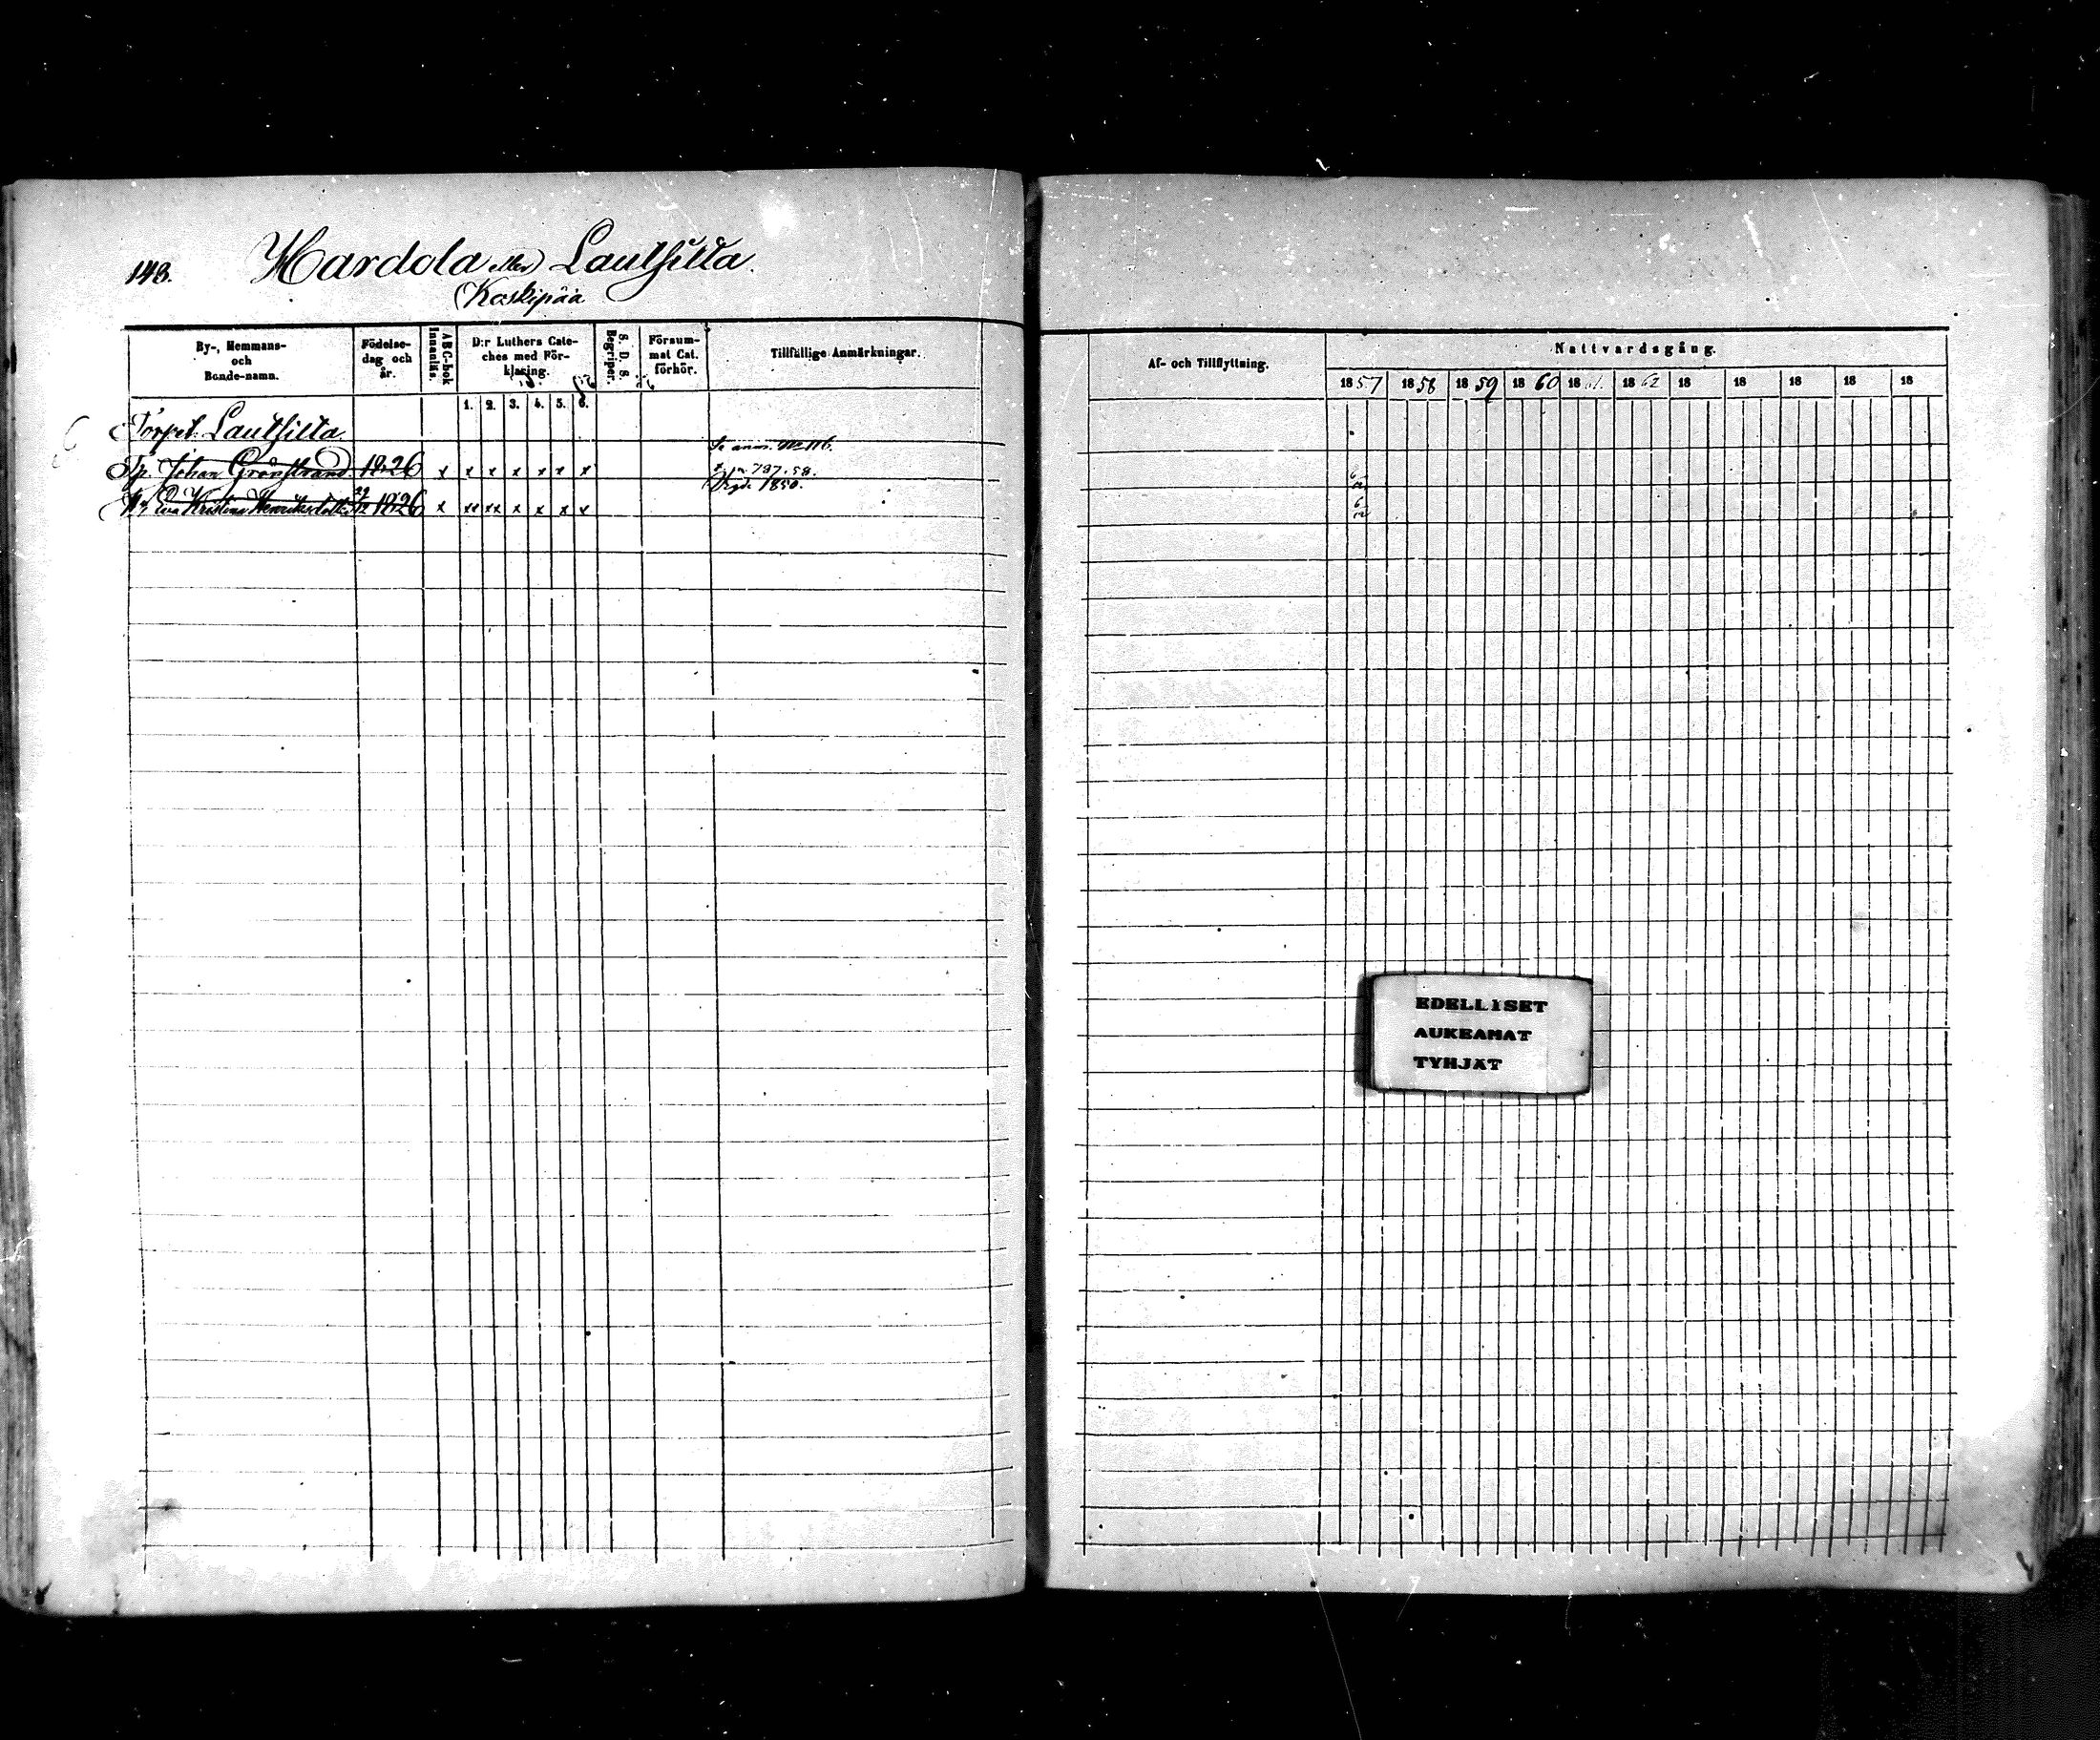 143. Hardola eller Lautsilla.
(Koskipää
By-, Hemmans- och Bonde-namn.
Födelse-dag och år.
ABC-bok Innanläs.
D:r Luthers Cate-ches med För-klaring.
1. 2. 3. 4. 5. 6.
S. D. S. Begriper.
Försum-mat Cat. förhör.
Tillfällige Anmärkningar.
Torpet Lautsilla.
Se anm. No 116.
Tp. Johan Grönstrand 1826 x x x x x x x
737. 58.
Vigde 1850.
H. Eva Kristina Henriksdotter 1826 x xx xx x x x x
Af- och Tillflyttning.
Nattvardsgång.
1857 1858 1859 1860 1861. 1862 18 18 18 18 18
EDELLISET
AUKEAMAT
TYHJÄT